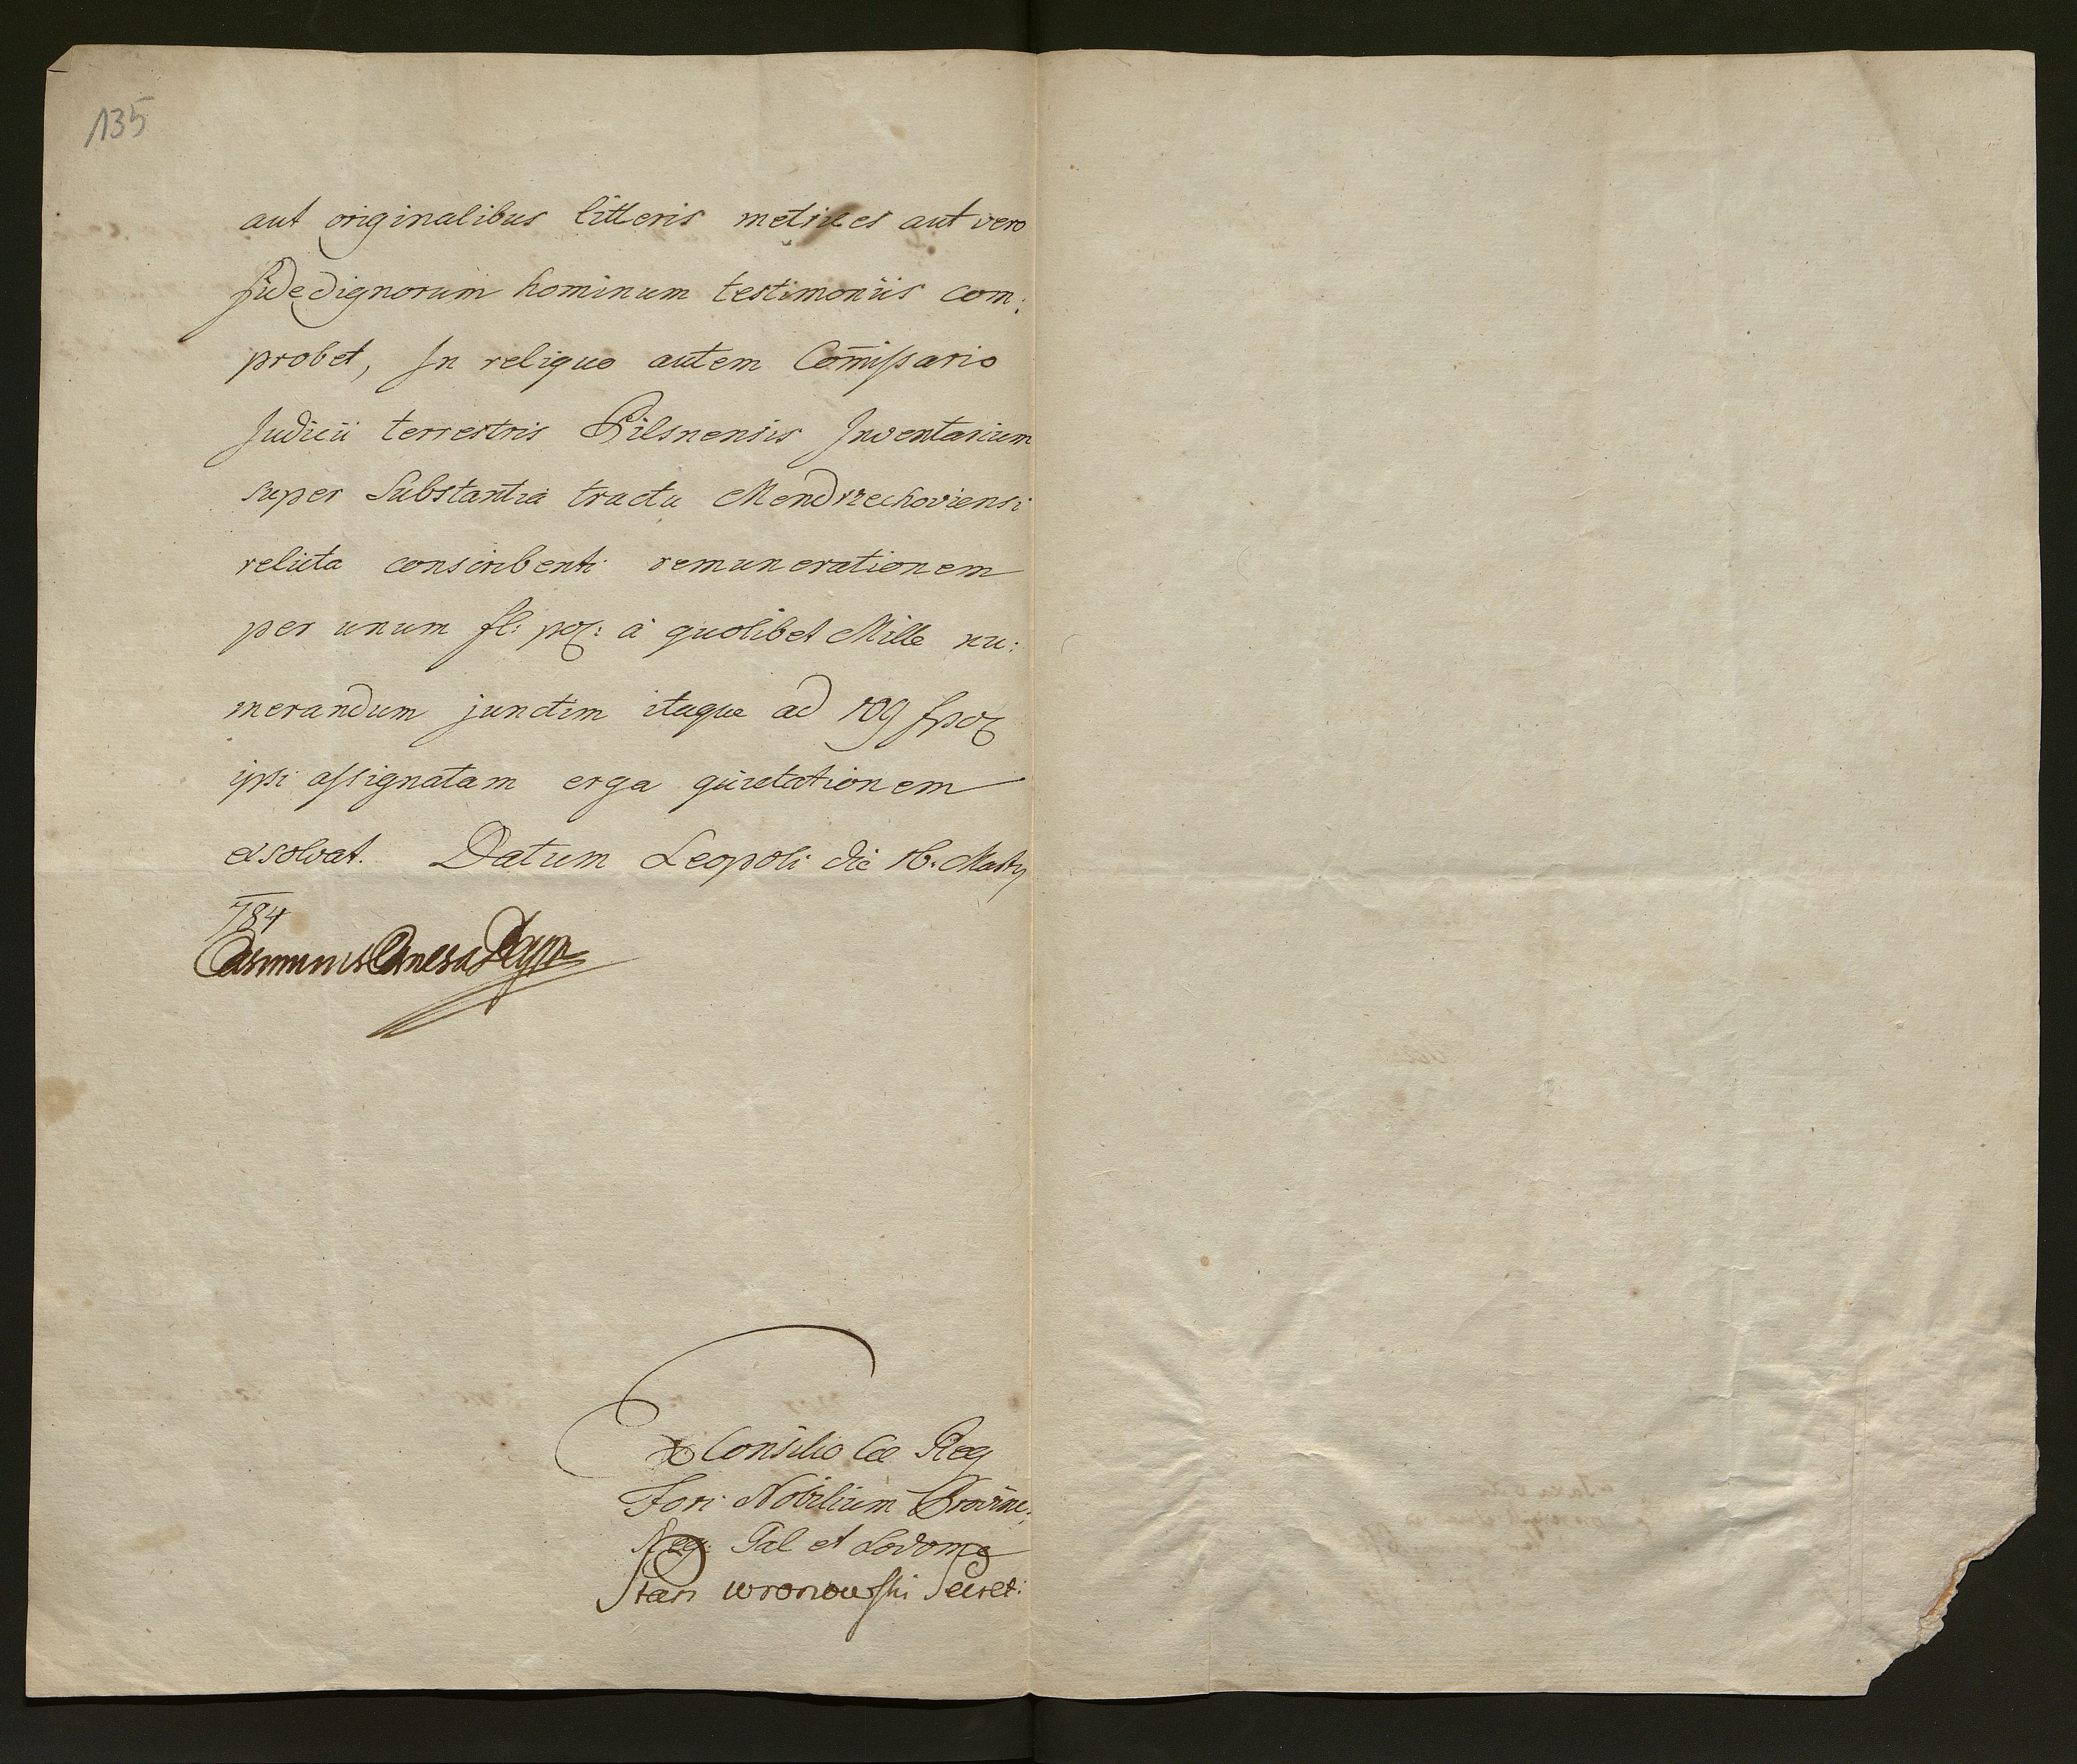 135
aut originalibus litteris metrices aut vero
fide dignorum hominum testimoniis com:
probet, In reliquo autem Com̄issario
Judicii terrestris Pilsnensis Inventarium
super Substantia tractu Mendrzechoviensi
relicta conscribenti remunerationem
per unum fl: pol: a quolibet Mille nu:
merandum junctim itaque ad 109 fpol
ipsi assignatam erga quietationem
exsolvat. Datum Leopoli die 16. Martij
784
Ex Consilio Cae Reg
Fori Nobilium Provinc:
Reg: Gal et Lodome
Stan Wronowski Secret: